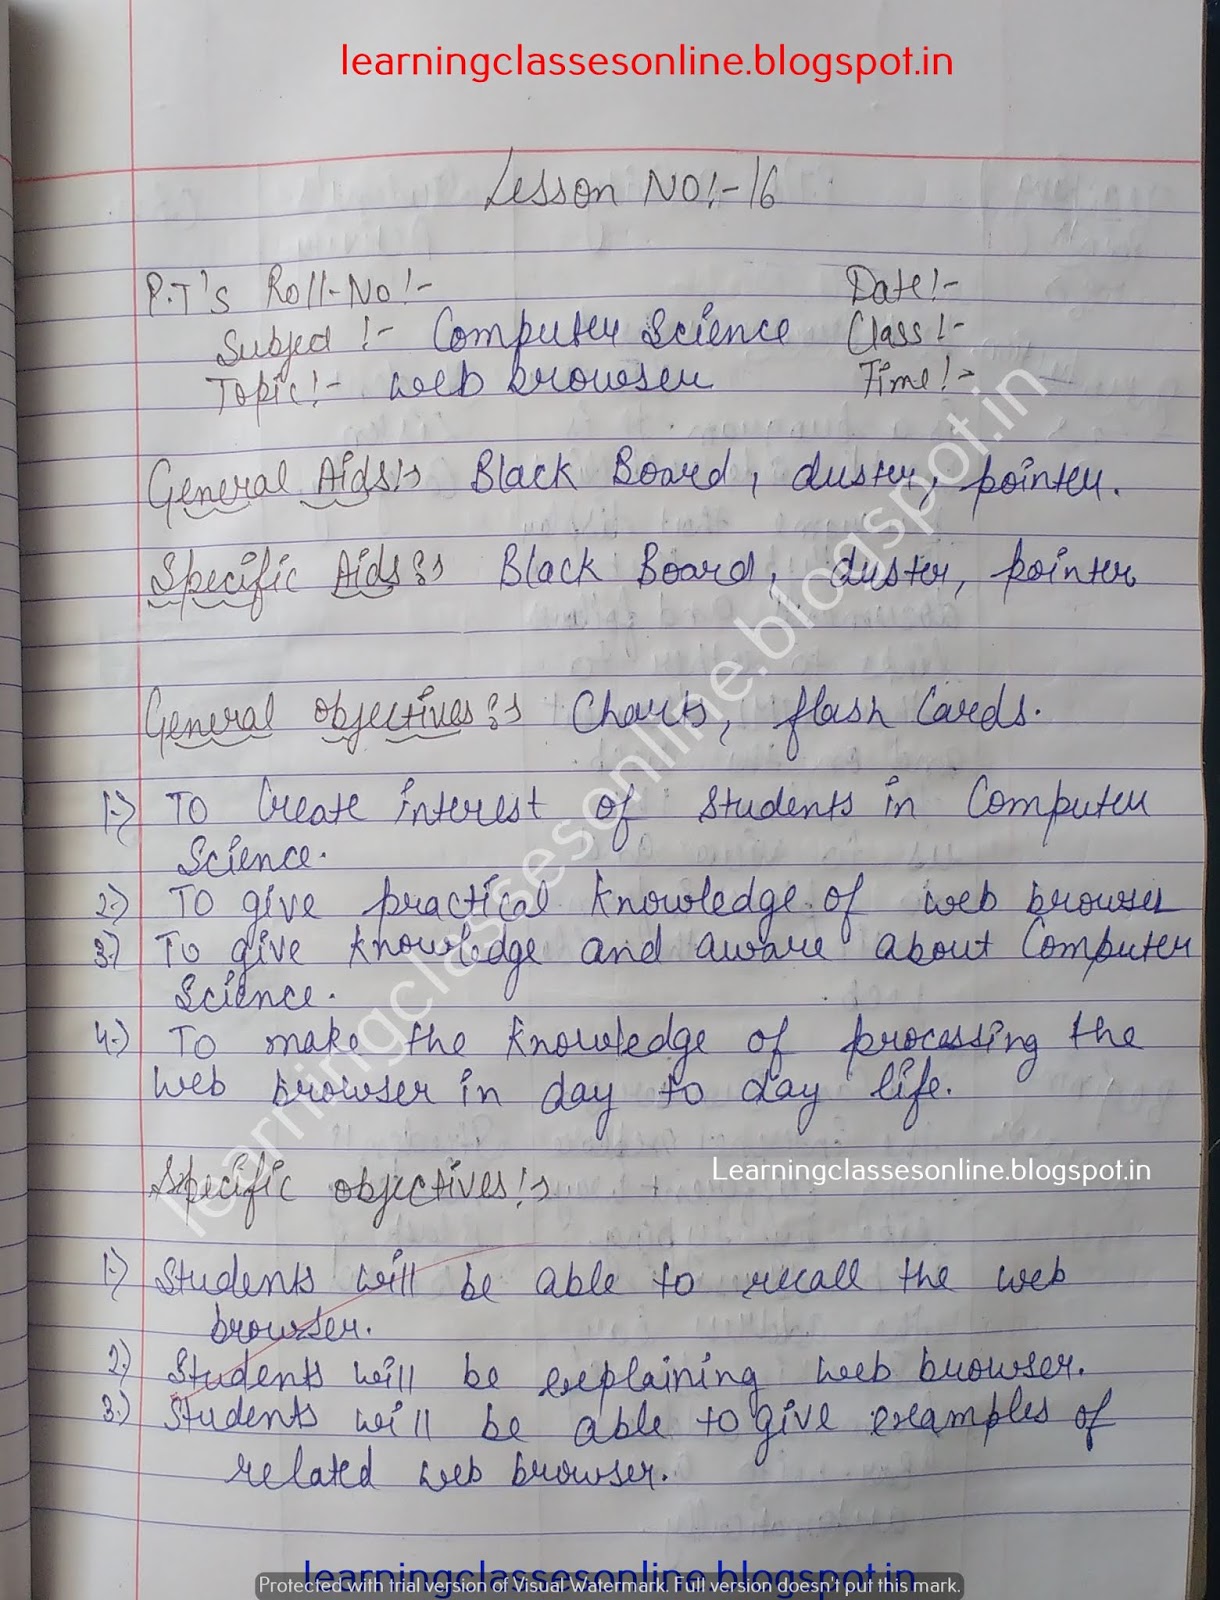 learningclassesonline.blogspot.in
Lesson NO:-16
P.T's Roll-No:-
Date:-
Subject :- Computer Science
Class:-
Topic:- web browser
Time:-
General Aids:- Black Board, duster, pointer.
Specific Aids:- Black Board, duster, pointer
General objectives:- Charts, flash Cards.
1.) To Create interest of students in Computer
Science.
2.) To give practical knowledge of web browser
3.) To give knowledge and aware about Computer
Science.
4.) To make the knowledge of processing the
web browser in day to day life.
Specific objectives:-
Learningclassesonline.blogspot.in
1.) Students will be able to recall the web
browser.
2.) Students will be explaining web browser.
3.) Students will be able to give examples of
related web browser.
learningclassesonline.blogspot.in
learningclassesonline.blogspot.in
Protected with trial version of Visual Watermark. Full version doesn't put this mark.